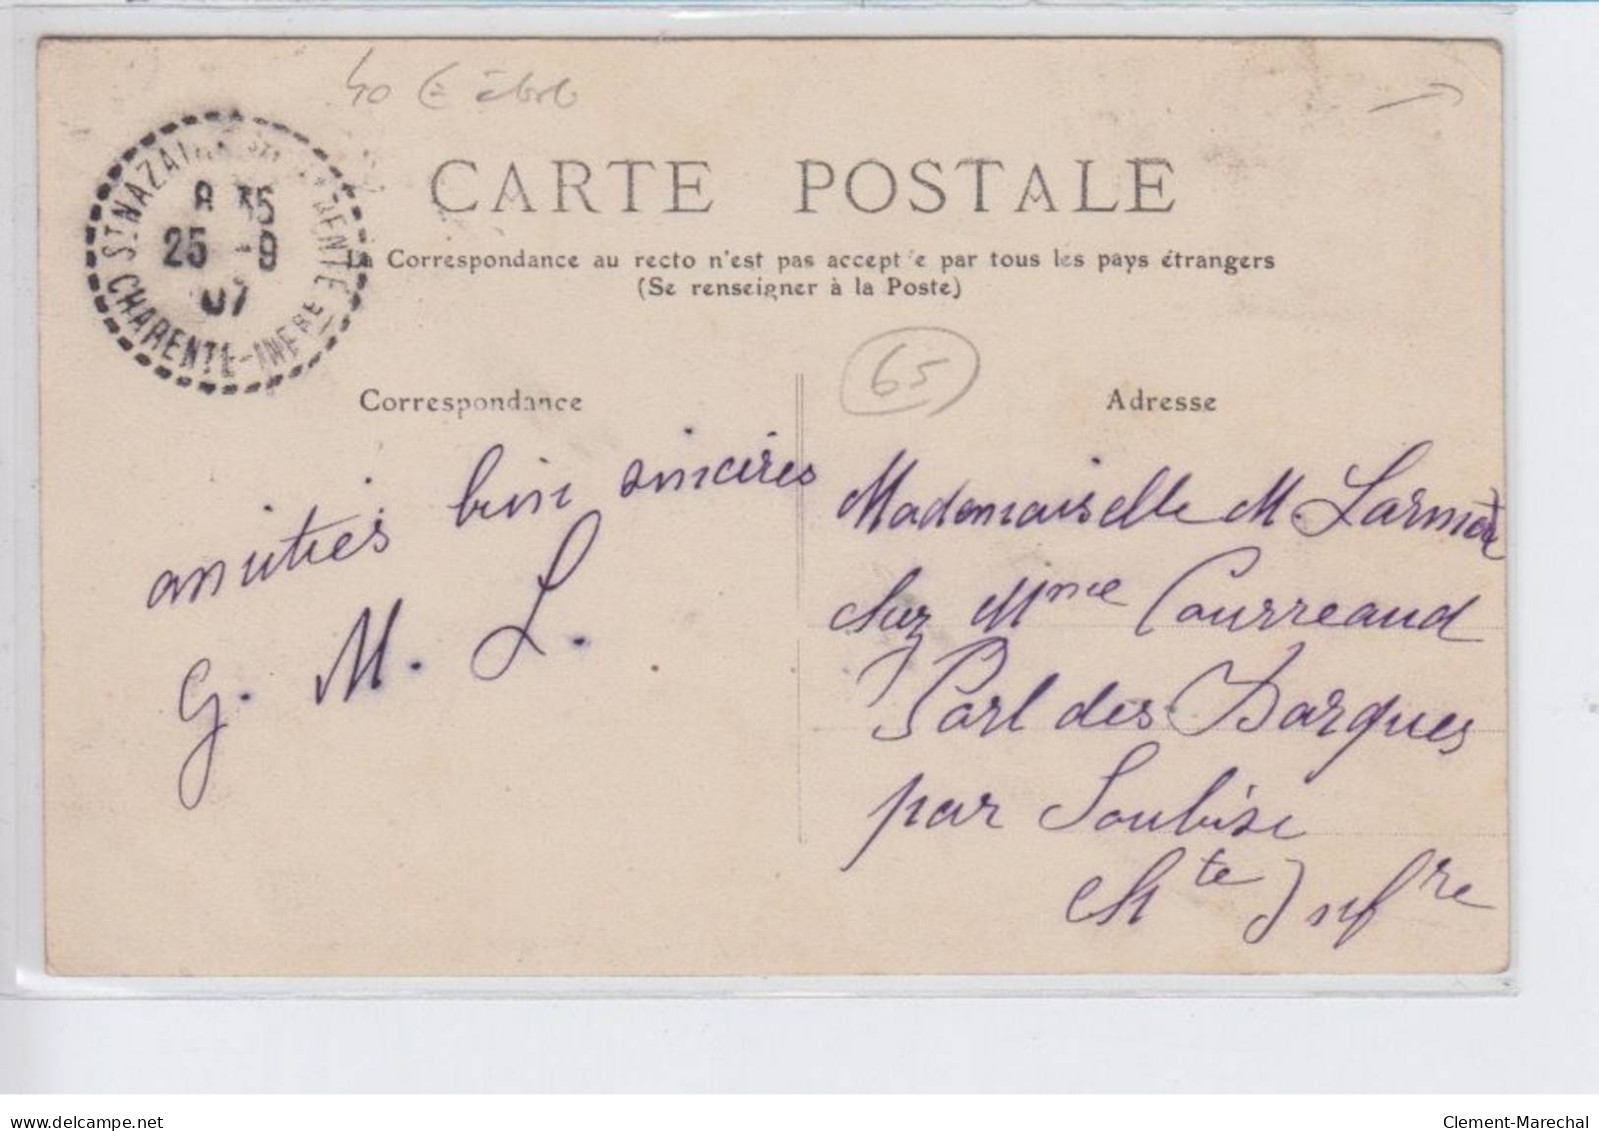 40 €
CARTE POSTALE
La Correspondance au recto n'est pas acceptée par tous les pays étrangers
(Se renseigner à la Poste)
ST NAZAIRE
CHARENTE
8 35
25 -9
07
CHARENTE-INFRE
65
Correspondance
Adresse
amitiés bien sincères
G. M. L.
Mademoiselle M.
chez Mme Courreaud
Port des Barques
par Soubise
Chte Infre
www.delcampe.net
Clement-Marechal